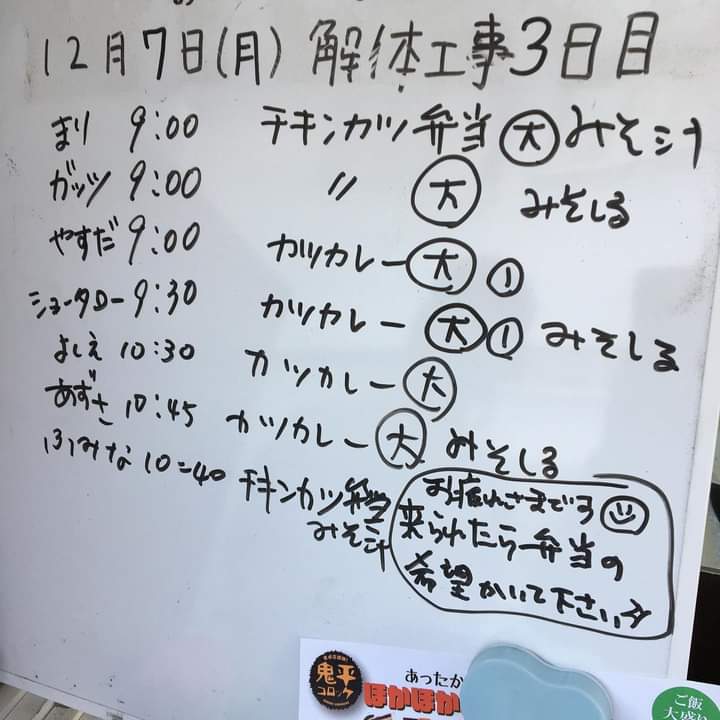 12月7日(月) 解体工事3日目
まり 9:00 チキンカツ弁当 大 みそ汁
ガッツ 9:00 〃 大 みそしる
やすだ 9:00 カツカレー 大 1
ショータロー 9:30 カツカレー 大 1 みそしる
よしえ 10:30 カツカレー 大
あずさ 10:45 カツカレー 大 みそしる
ふみな 10:40 チキンカツ弁当
みそ汁
お疲れさまです
来られたら弁当の
希望かいて下さい
鬼平
コロッケ
あったか
ほかほか
ご飯
大盛り